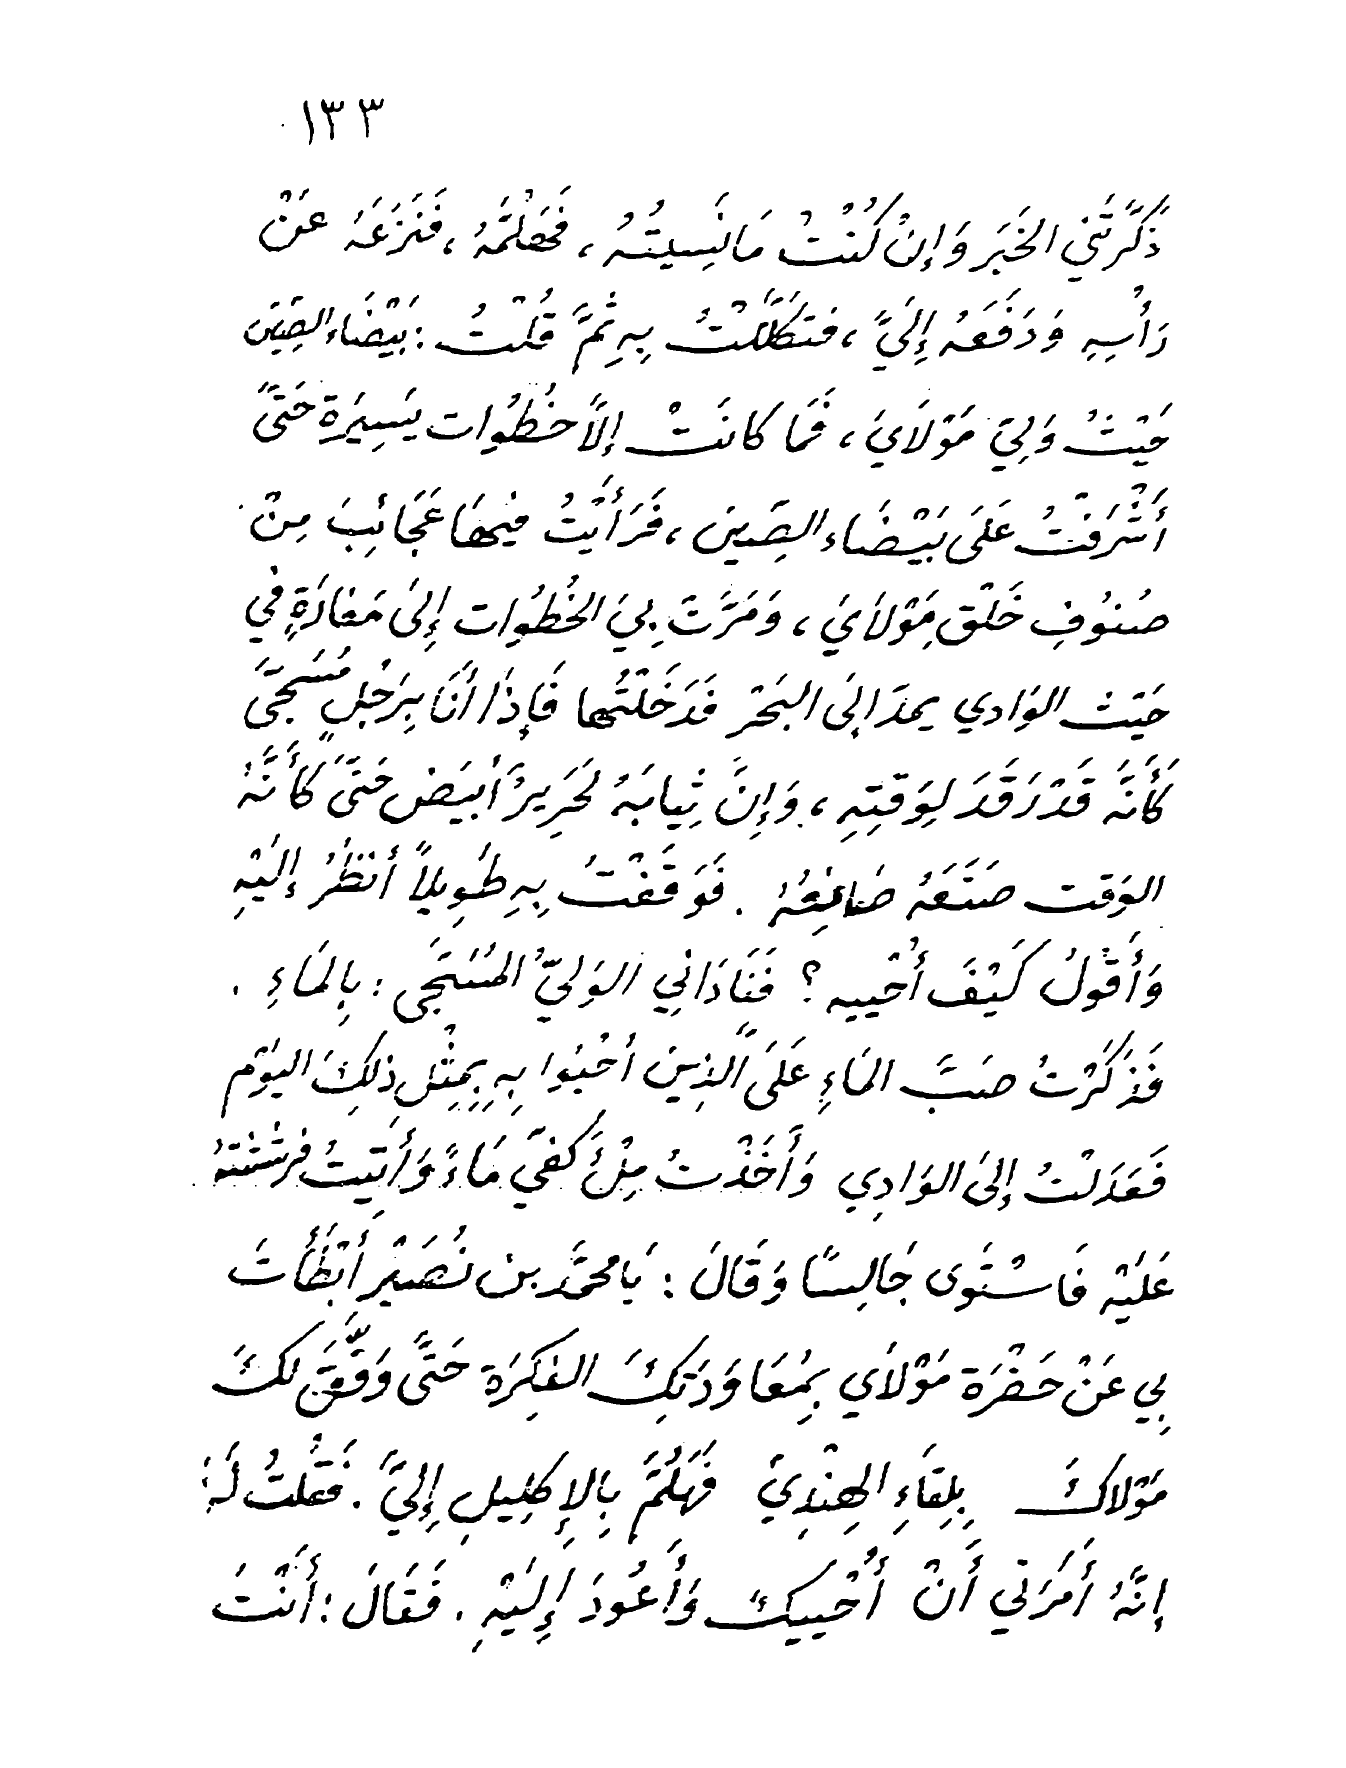 ١٣٣
ذَكَّرْتَنِي الخَبَرَ وَإِنْ كُنْتُ مَا نَسِيتُهُ ، فَهَلُمَّهُ ، فَنَزَعَهُ عَنْ
رَأْسِهِ وَدَفَعَهُ إِلَيَّ ، فَتَكَلَّلْتُ بِهِ ثُمَّ قُلْتُ : بَيْضَاء الصِّينَ
حَيْثُ وَلِيّ مَوْلَايَ ، فَمَا كَانَتْ إِلَّا خُطُوَات يَسِيرَة حَتَّى
أَشْرَفْتُ عَلَى بَيْضَاء الصِّين ، فَرَأَيْتُ فِيهَا عَجَائِبَ مِنْ
صُنُوفِ خَلْقِ مَوْلَايَ ، وَمَرَّتَ بِيَ الخُطُوَات إِلَى مَغَارَةٍ فِي
حَيْث الوَادِي يمدّ إِلَى البَحْر فَدَخَلْتُهَا فَإِذَا أَنَا بِرَجُلٍ مُسَجَّى
كَأَنَّهُ قَدْ رَقَدَ لِوَقْتِهِ ، وَإِنَّ ثِيَابَهُ لَحَرِيرٌ أَبْيَض حَتَّى كَأَنَّهُ
الوَقت صَنَعَهُ صَانِعُهُ . فَوَقَفْتُ بِهِ طَوِيلاً أَنْظُرُ إِلَيْهِ
وَأَقُولُ كَيْفَ أُحْيِيهِ ؟ فَنَادَانِي الوَلِيُّ المُسَجَّى : بِالمَاءِ .
فَذَكَرْتُ صَبَّ المَاءِ عَلَى الَّذِينَ أُحْيُوا بِهِ بِمِثْلِ ذَلِكَ اليَوْم
فَعَدَلْتُ إِلَى الوَادِي وَأَخَذْتُ مِلْءَ كَفِّيَ مَاءً وَأَتَيتُ فَرَشَشْتهُ
عَلَيْهِ فَاسْتَوَى جَالِسًا وَقَالَ : يَا محمَّد بن نُصَيْر أَبْطَأْتَ
بِي عَنْ حَضْرَة مَوْلَاي بِمُعَاوَدَتِكَ الفِكْرَة حَتَّى وَفَّقَ لَكَ
مَوْلَاكَ بِلِقَاءِ الهِنْدِيّ فَهَلُمَّ بِالإِكلِيلِ إِلَيَّ . فَقُلتُ لَهُ
إِنَّهُ أَمَرَنِي أَنْ أُحْيِيكَ وَأَعُودَ إِلَيْهِ . فَقَالَ : أَنْتَ